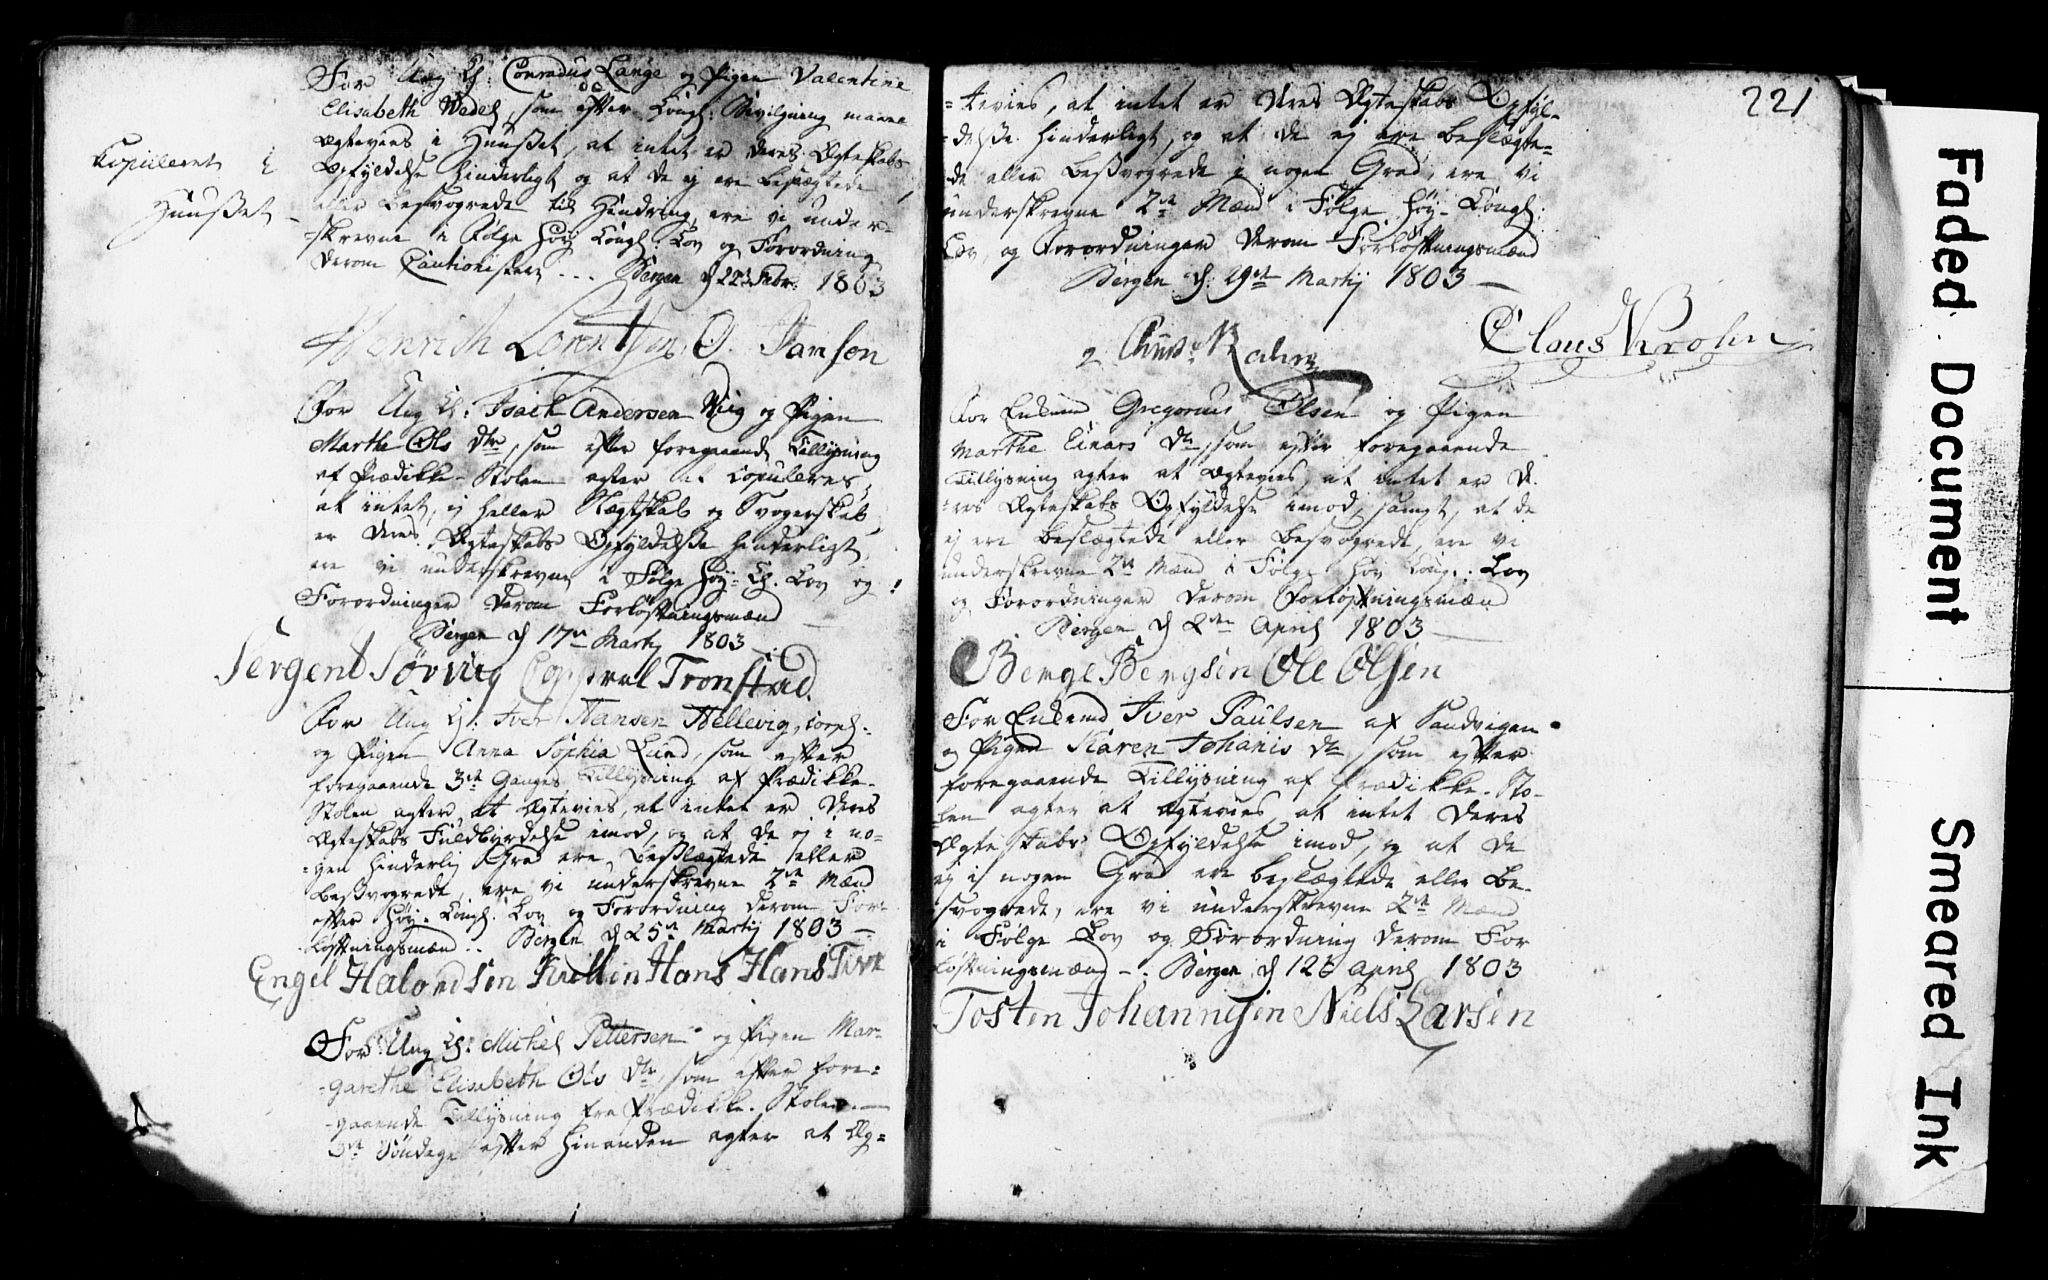 For Ung K: Conradus Lange og Pigen Valentine
Elisabeth Wedel, som efter Kongl: Bevilgning maae
Ægtevies i Huuset, at intet er deres Ægteskabs
Opfyldelse hinderligt og at de ej ere beslægtede
eller besvogrede til Hindring, ere vi under-
-skrevne i Følge høy Kongl: Lov og Forordning
derom Cautionister --- Bergen d 22 Febr: 1803
Copuleret i
Huuset
Henrich Lorentsen O. Jansen
For Ung K: Isack Andersen og Pigen
Marthe Ols dtr, som efter foregaaende Tillysning
af Prædikke-Stolen agter at copuleres,
at intet, ej heller Slægtskab og Svogerskab
er deres Ægteskabs Opfyldelse hinderligt,
ere vi underskrevne i Følge høy-K. Lov og
Forordninger derom Forløftningsmænd
Bergen d 17de Martij 1803
Sergent Sørvig Copperal Tronstad
For Ung K: Iver Hansen Hellevig,
og Pigen Anna Sophia Lund, som efter
foregaaende 3de Ganges Tillysning af Prædikke-
Stolen agter at Ægtevies, at intet er deres
Ægteskabs Fuldbyrdelse imod, og at de ej i no-
-gen hinderlig Grad ere beslægtede eller
besvogrede, ere vi underskrevne 2de Mænd
efter høy-Kongl: Lov og Forordning derom For-
løftningsmænd -- Bergen d 25de Martij 1803
Engel Halvorsen Hans Hans
For Ung K: Michel Pettersen og Pigen Mar-
-garethe Elisabeth Ols dtr, som efter fore-
-gaaende Tillysning fra Prædikke-Stolen
3de Søndage efter hinanden agter at Æg-
221
-tevies, at intet er deres Ægteskabs Opfyl-
-delse hinderligt, og at de ej ere beslægte-
-de eller besvogrede i nogen Grad, ere vi
underskrevne 2de Mænd i Følge høy-Kongl:
Lov, og Forordninger derom Forløftningsmænd
Bergen d: 19de Martij 1803
Claus Krohn
For Enkemd Gregorius Olsen og Pigen
Marthe Einars Dtr, som efter foregaaende
Tillysning agter at Ægtevies, at intet er de-
-res Ægteskabs Opfyldelse imod, samt, at de
ej ere beslægtede eller besvogrede, ere vi
underskrevne 2de Mænd i Følge høy Kong: Lov
og Forordninger derom Forløftningsmænd
Bergen d 2den April 1803
Berge Bergsen Ole Olsen
For Enkemd Iver Paulsen af Sandvigen
og Pigen Karen Johanis dtr, som efter
foregaaende Tillysning af Prædikke-Sto-
-len agter at Ægtevies at intet deres
Ægteskabs Opfyldelse imod, og at de
ej i nogen Grad ere beslægtede eller be-
svogrede, ere vi underskrevne 2de Mænd
i Følge Lov og Forordning derom For
løftningsmænd -- Bergen d 12 April 1803
Tosten Johannesen Niels Larsen
Faded Document
Smeared Ink